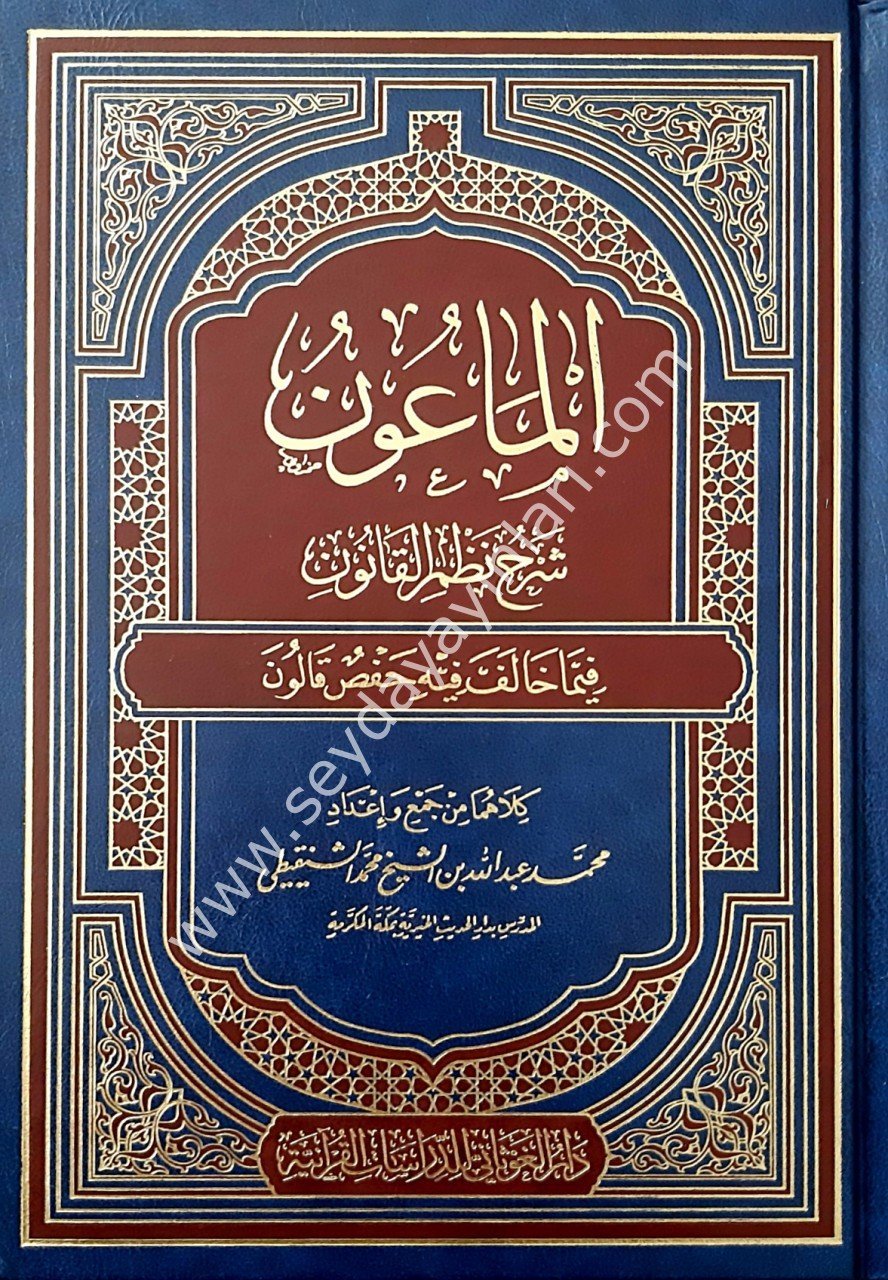 الْمَاعُونُ
شَرْحُ نَظْمِ الْقَانُونِ
فِيمَا خَالَفَ فِيهِ حَفْصٌ قَالُونَ
كِلَاهُمَا مِنْ جَمْعِ وَإِعْدَادِ
محمَّد عبد الله بن الشيخ محمَّد الشنقيطي
المدرّس بدار الحديث الخيريّة بمكّة المكرّمة
دَارُ الغَوْثَانِي لِلدِّرَاسَاتِ القُرْآنِيَّةِ
www.seydayayinlari.com